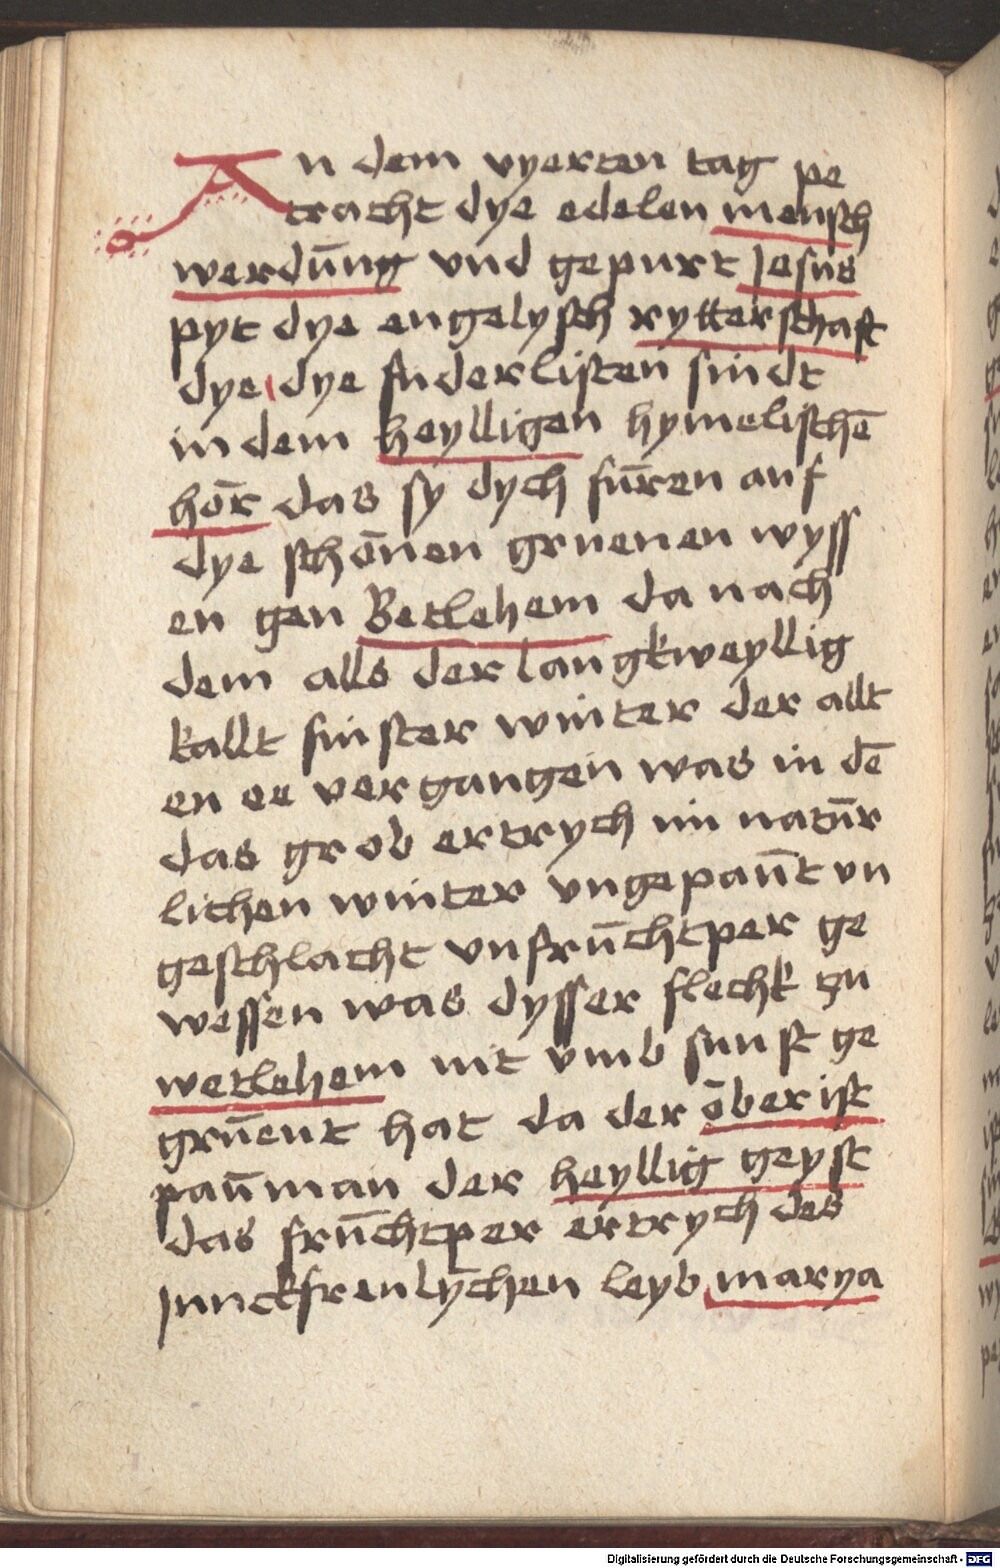 An dem vyerten tag pe
tracht dye edelen mensch
werdūng vnd gepurt Jesus
pyt dye engelysch rytterschaft
dye dye fuderlisten sindt
in dem heylligen hymelischē
hōr das sy dych fūren auf
dye schōnen gruenen wyss
en gen Betlehem da nach
dem alls der langkweyllig
kallt finster winter der allt
en ee vergangen was in dē
das grob ertrych im natūr
lichen winter vngepaūt vn
geschlacht vnfrūchtper ge
wessen was dysser fleckk zu
wetlehem nit vmb sunst ge
grūent hat da der ōberist
paūman der heyllig geyst
das frūchtper ertrych des
Junckfrenlychen leyb marya
Digitalisierung gefördert durch die Deutsche Forschungsgemeinschaft - DFG